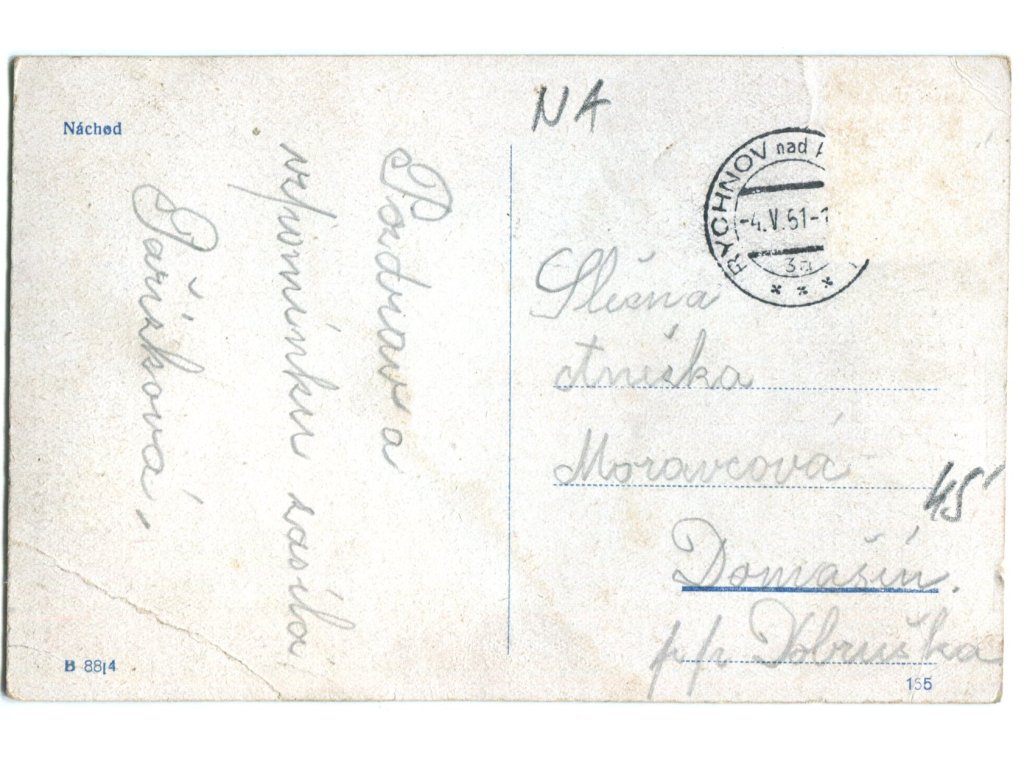 Náchod
NA
RYCHNOV nad
-4.V.61-1
3a
Pozdrav a
vzpomínku zasílá
Pařízková.
Slečna
Anička
Moravcová
45
Domašín.
p/p Dobruška
B 88/4
155